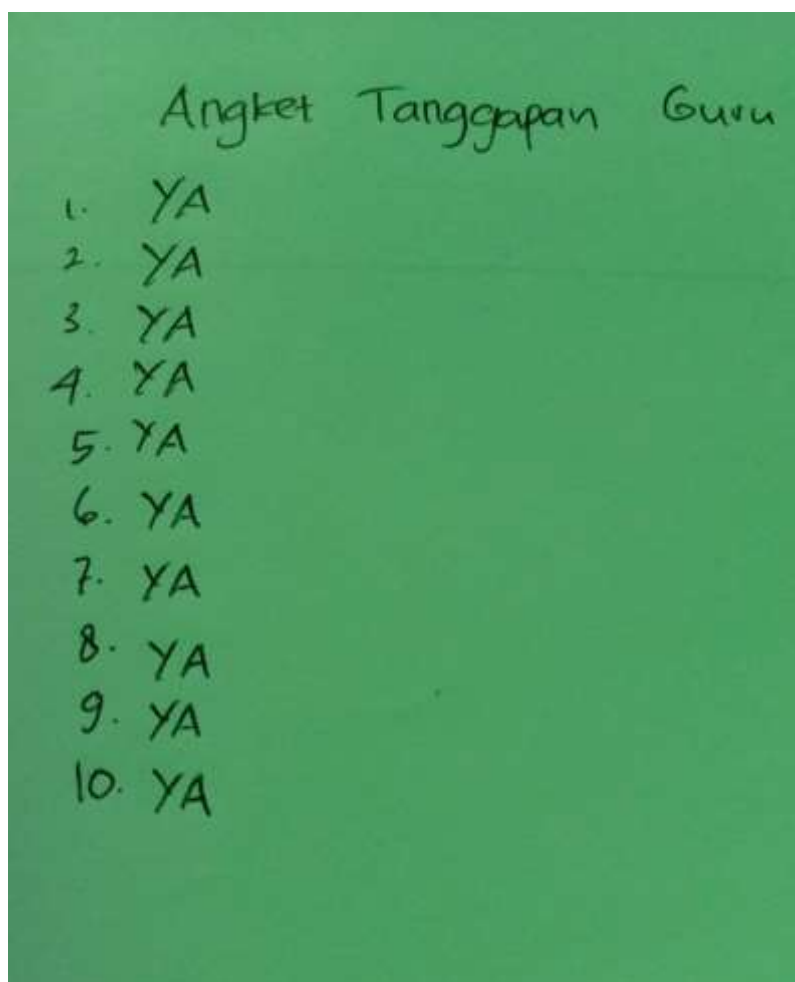 Angket Tanggapan Guru
1. YA
2. YA
3. YA
4. YA
5. YA
6. YA
7. YA
8. YA
9. YA
10. YA